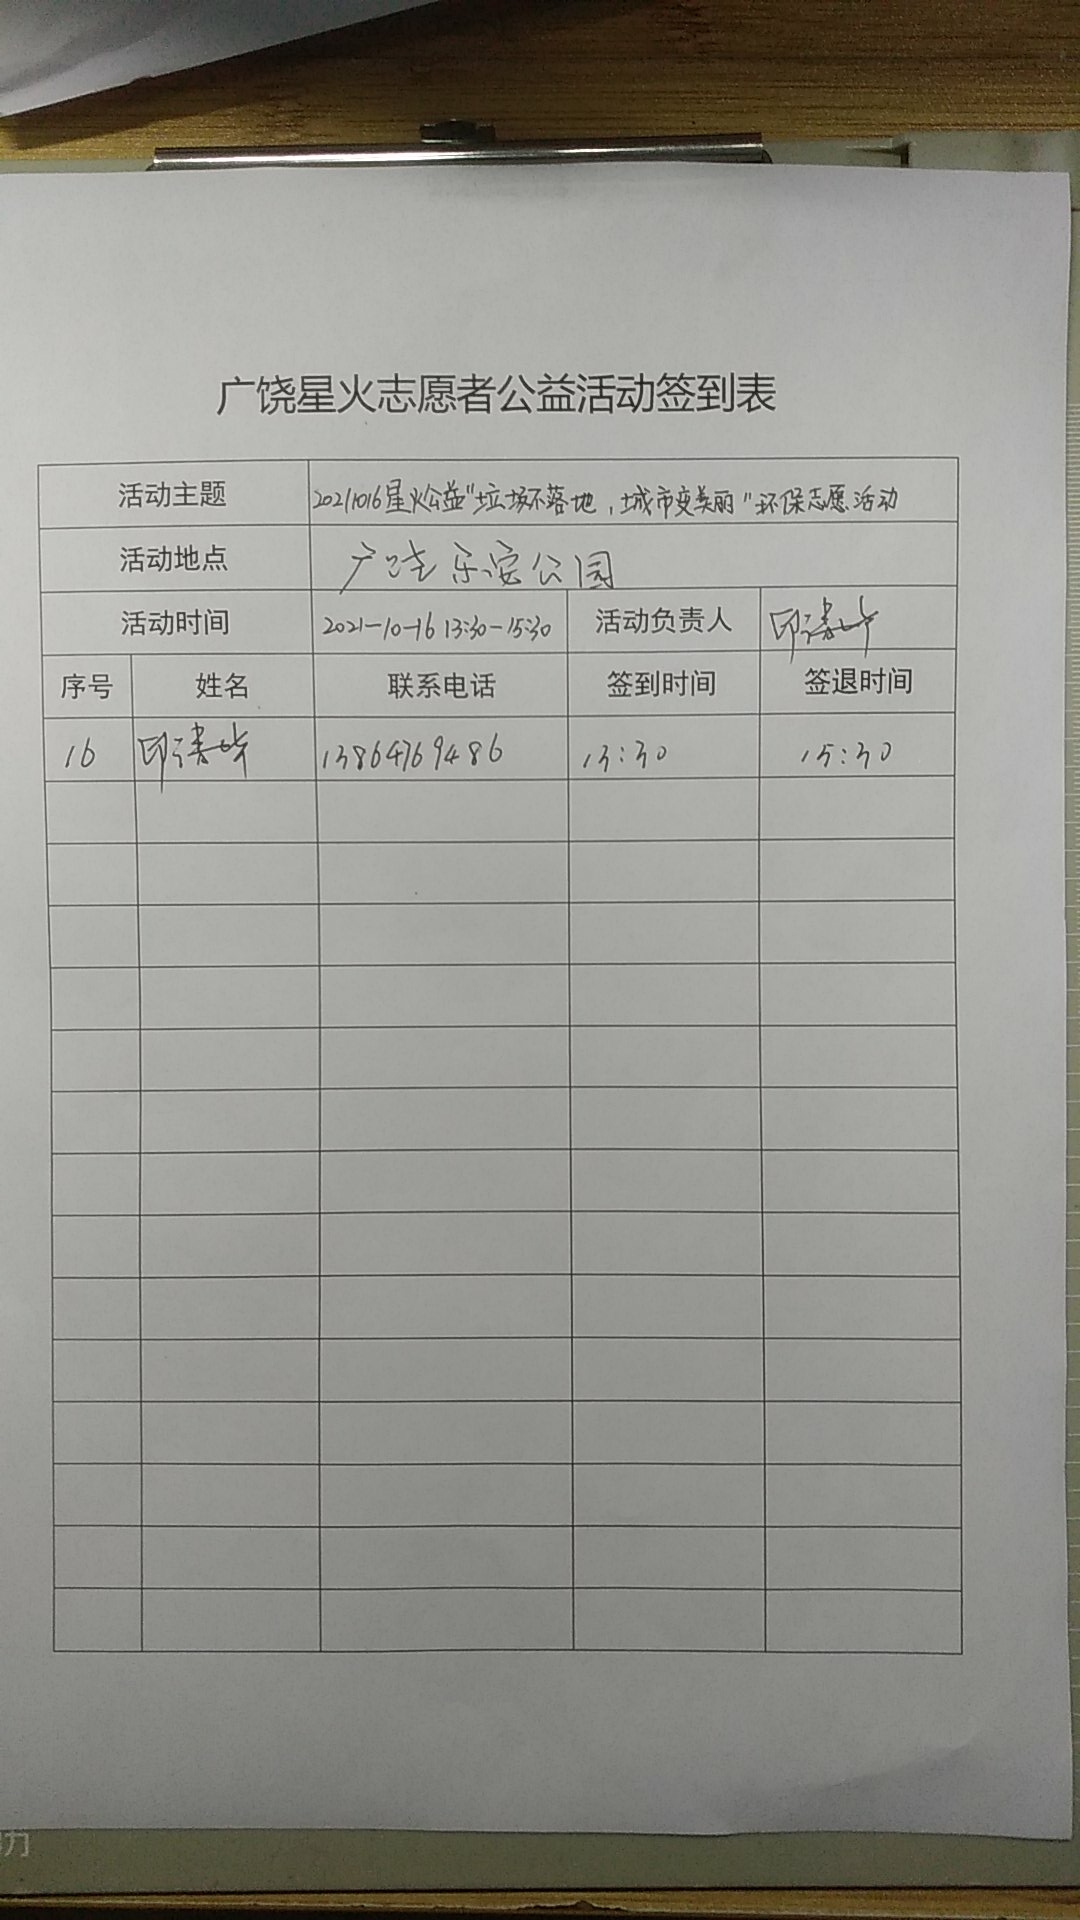 广饶星火志愿者公益活动签到表
活动主题 20211016星火公益"垃圾不落地,城市变美丽"环保志愿活动
活动地点 广饶乐安公园
活动时间 2021-10-16 13:30-15:30 活动负责人 印
序号 姓名 联系电话 签到时间 签退时间
16 印 13864769486 13:30 15:30
力